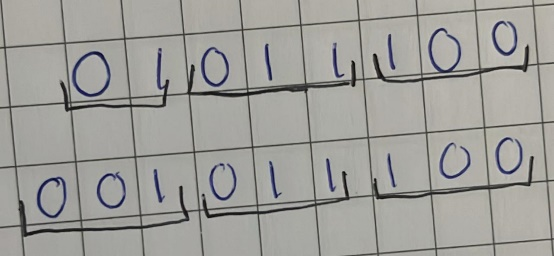 01 011 100
001 011 100